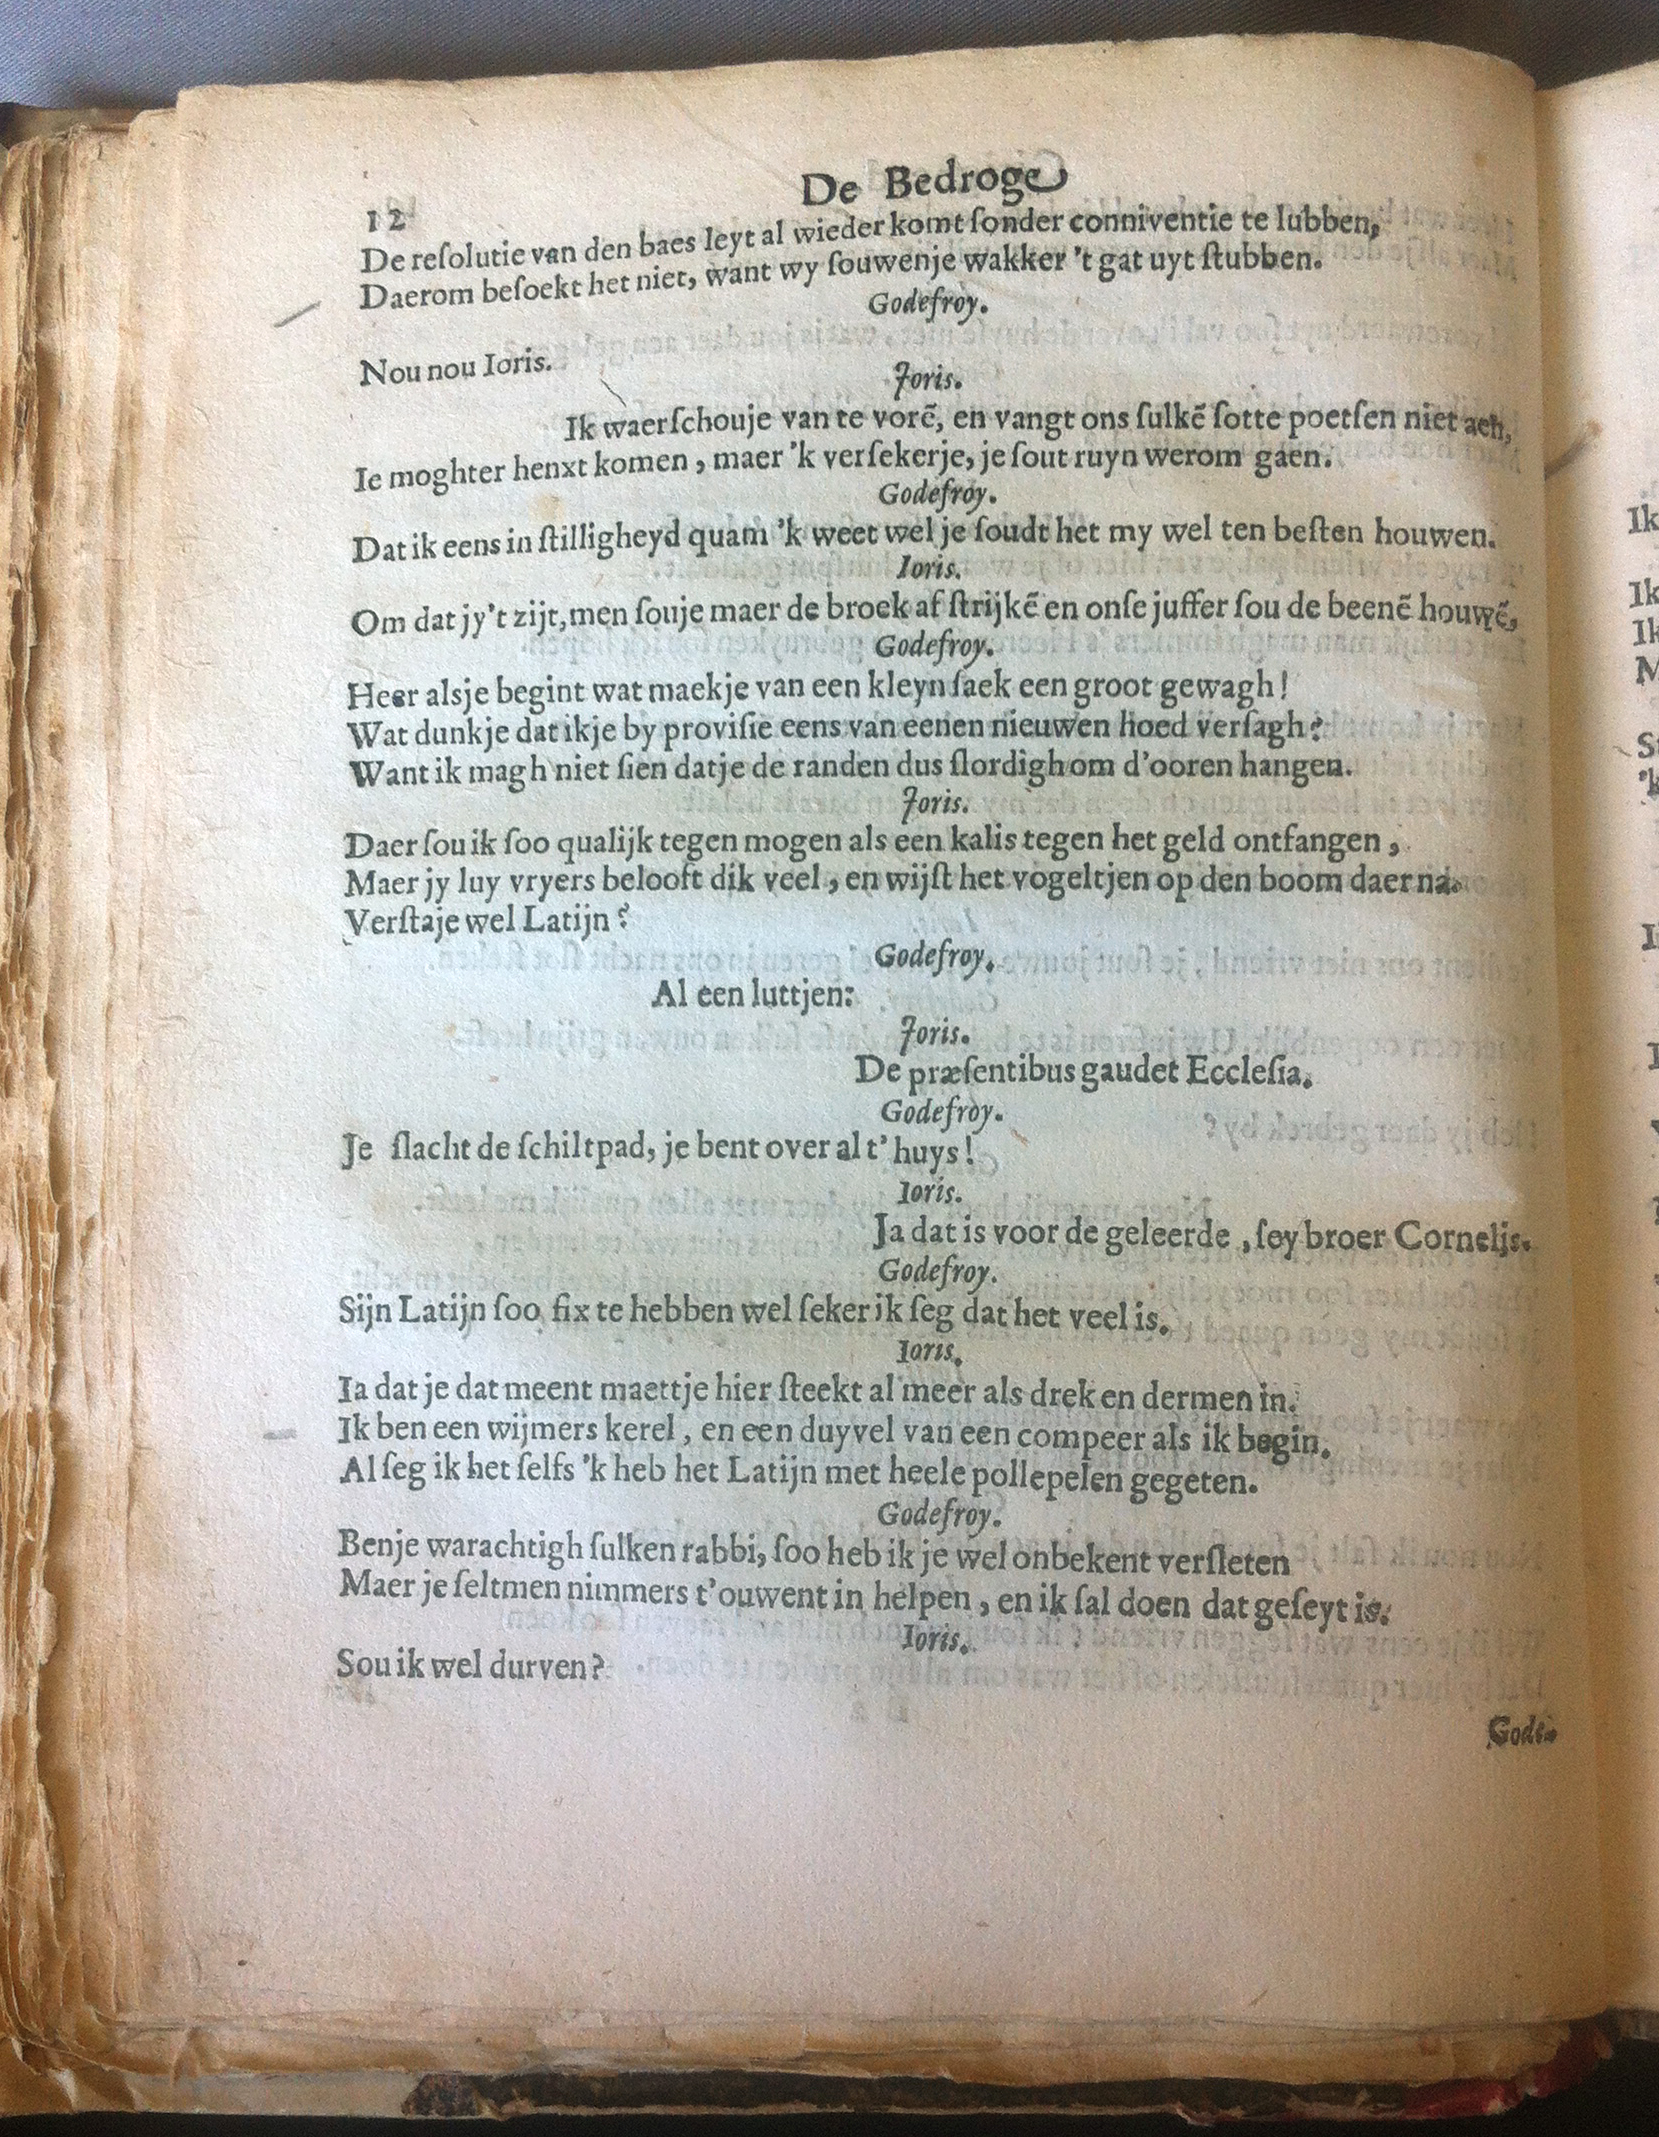 De Bedroge
12
De reſolutie van den baes leyt al wieder komt ſonder conniventie te lubben,
Daerom beſoekt het niet, want wy ſouwenje wakker 't gat uyt ſtubben.
Godefroy.
Nou nou Ioris.
Joris.
Ik waerſchouje van te vorẽ, en vangt ons ſulkẽ ſotte poetſen niet aen,
Ie moghter henxt komen, maer 'k verſekerje, je ſout ruyn werom gaen.
Godefroy.
Dat ik eens in ſtilligheyd quam 'k weet wel je ſoudt het my wel ten beſten houwen.
Ioris.
Om dat jy't zijt, men ſouje maer de broek af ſtrijkẽ en onſe juffer ſou de beenẽ houwẽ,
Godefroy.
Heer alsje begint wat maekje van een kleyn ſaek een groot gewagh!
Wat dunkje dat ikje by proviſie eens van eenen nieuwen hoed verſagh?
Want ik magh niet ſien datje de randen dus ſlordigh om d'ooren hangen.
Joris.
Daer ſou ik ſoo qualijk tegen mogen als een kalis tegen het geld ontfangen,
Maer jy luy vryers belooft dik veel, en wijſt het vogeltjen op den boom daer na.
Verſtaje wel Latijn?
Godefroy.
Al een luttjen:
Joris.
De præſentibus gaudet Eccleſia.
Godefroy.
Je ſlacht de ſchiltpad, je bent over al t' huys!
Ioris.
Ja dat is voor de geleerde, ſey broer Cornelis.
Godefroy.
Sijn Latijn ſoo fix te hebben wel ſeker ik ſeg dat het veel is.
Ioris.
Ia dat je dat meent maettje hier ſteekt al meer als drek en dermen in.
Ik ben een wijmers kerel, en een duyvel van een compeer als ik begin.
Al ſeg ik het ſelfs 'k heb het Latijn met heele pollepelen gegeten.
Godefroy.
Benje warachtigh ſulken rabbi, ſoo heb ik je wel onbekent verſleten
Maer je ſeltmen nimmers t'ouwent in helpen, en ik ſal doen dat geſeyt is.
Ioris.
Sou ik wel durven?
Gode-